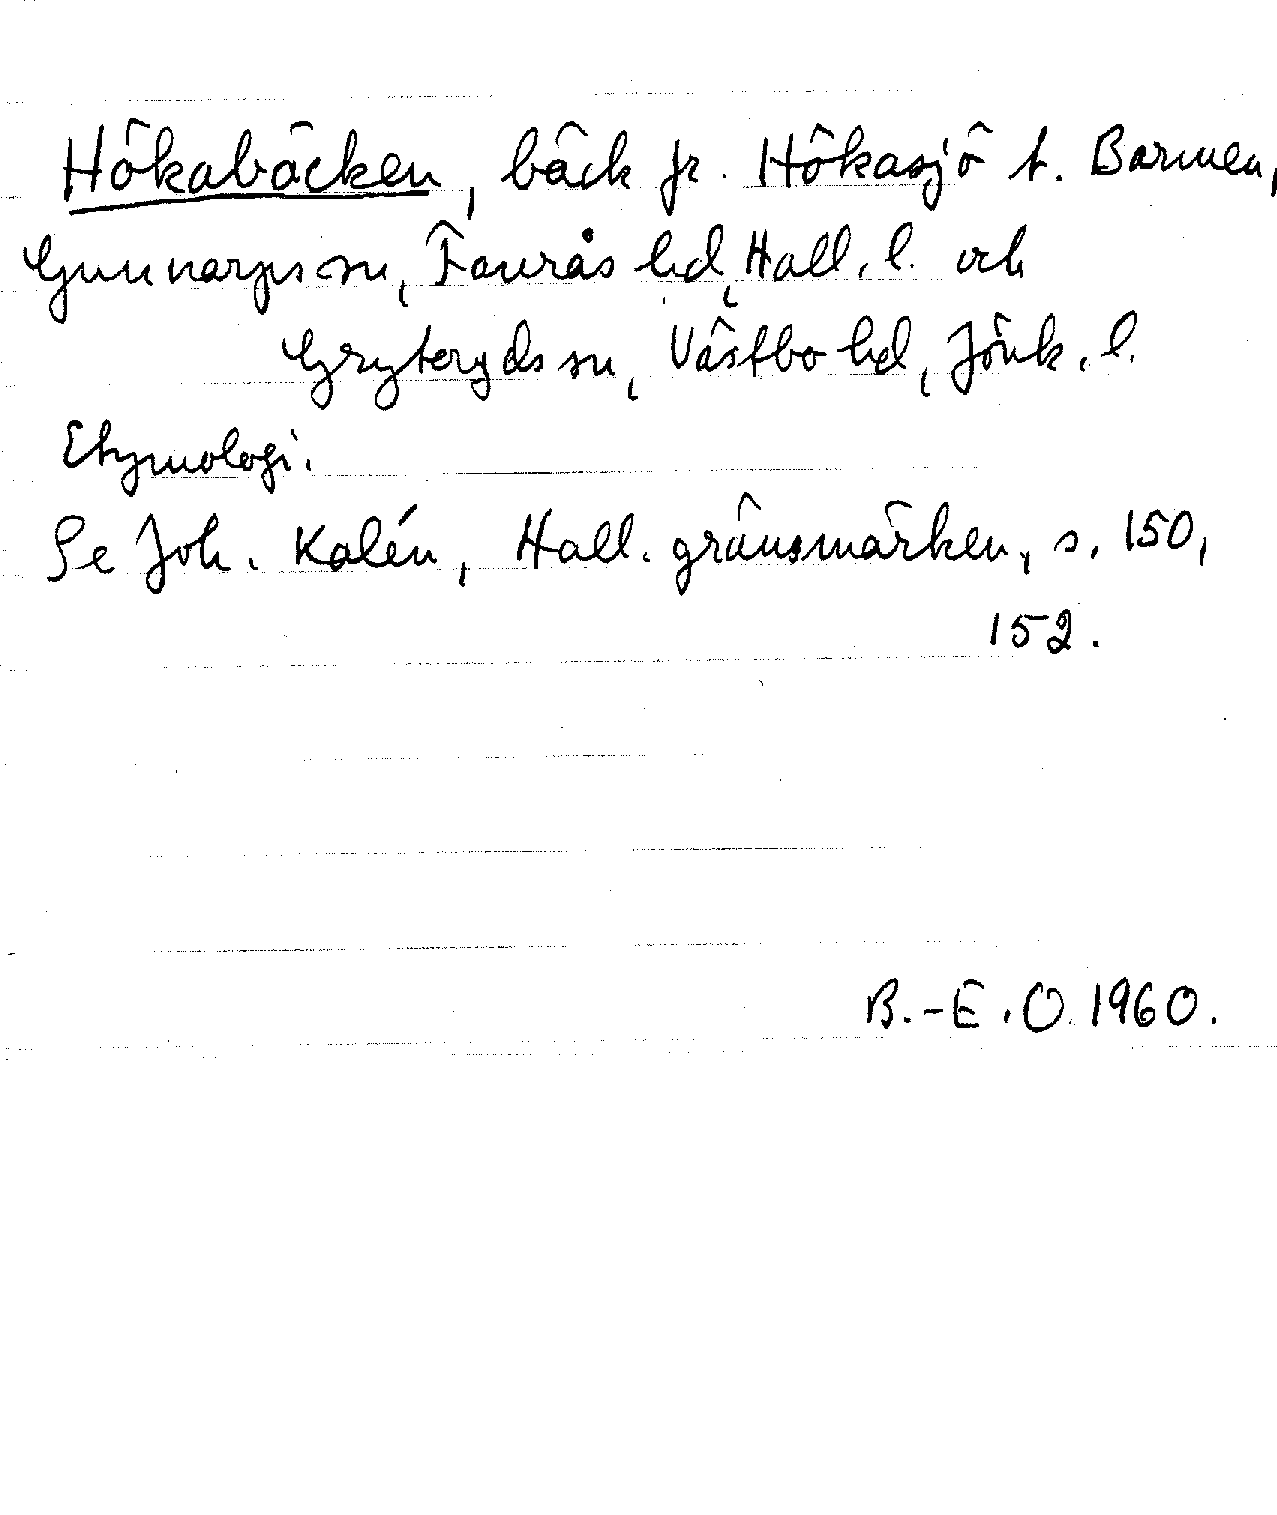 Hökabäcken, bäck fr. Hökasjö t. Barmen,
Gunnarps sn, Faurås hd, Hall. l. och
Gryteryds sn, Västbo hd, Jönk. l.
Etymologi.
Se Joh. Kalén, Hall. gränsmärken, s. 150,
152.
B.-E. O. 1960.